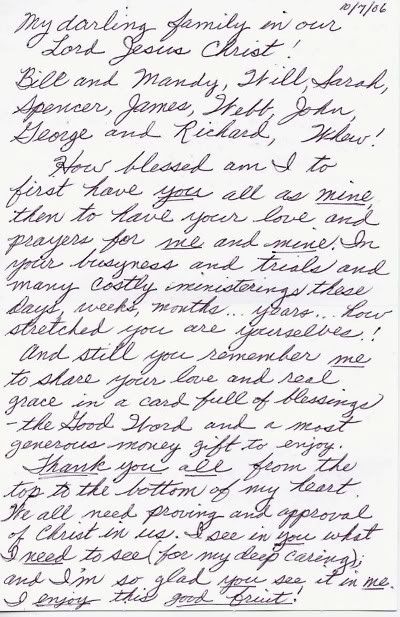 10/7/06
My darling family in our
Lord Jesus Christ!
Bill and Mandy, Will, Sarah,
Spencer, James, Webb, John,
George and Richard, Whew!
How blessed am I to
first have you all as mine,
then to have your love and
prayers for me and mine. In
your busyness and trials and
many costly ministerings these
days, weeks, months... years... how
stretched you are yourselves!
And still you remember me
to share your love and real
grace in a card full of blessings
- the Good Word and a most
generous money gift to enjoy.
Thank you all from the
top to the bottom of my heart.
We all need proving and approval
of Christ in us. I see in you what
I need to see (for my deep caring);
and I'm so glad you see it in me.
I enjoy this good Fruit!